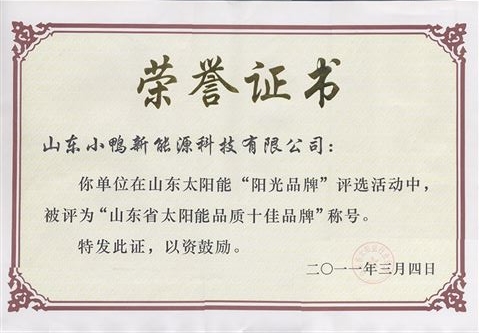 荣誉证书
山东小鸭新能源科技有限公司：
你单位在山东太阳能“阳光品牌”评选活动中，
被评为“山东省太阳能品质十佳品牌”称号。
特发此证，以资鼓励。
二〇一一年三月四日